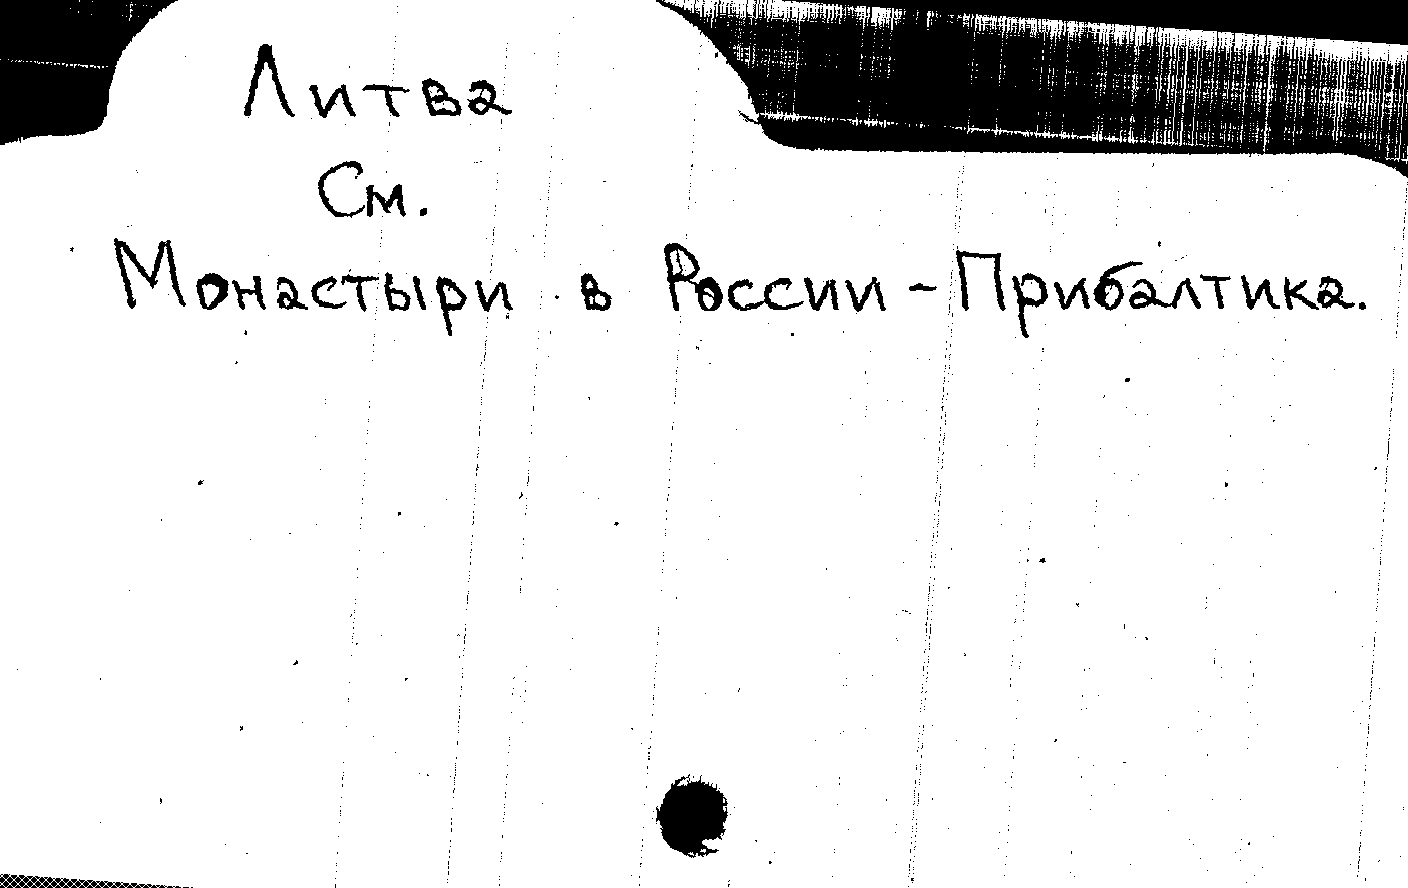 Литва
См.
Монастыри в России - Прибалтика.